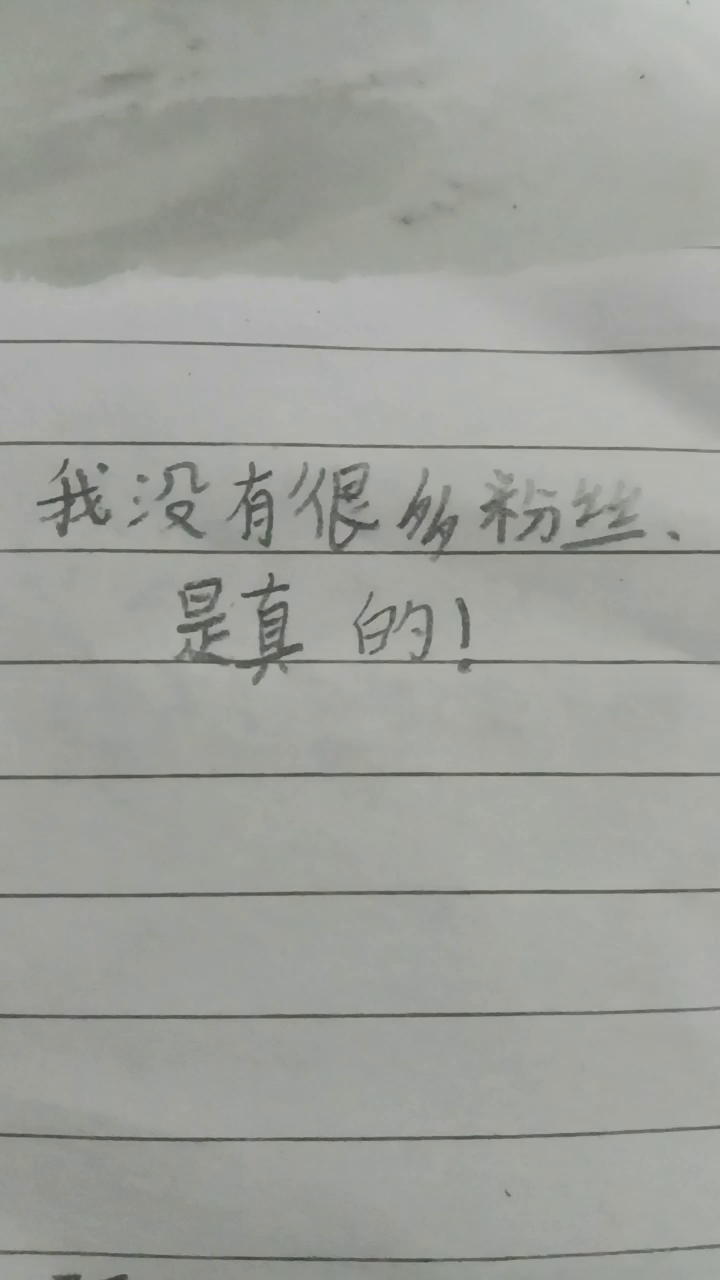 我没有很多粉丝、
是真的!